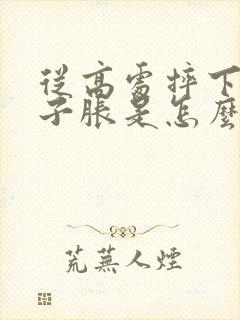 從高處摔下
子脹是怎麼
荒蕪人煙